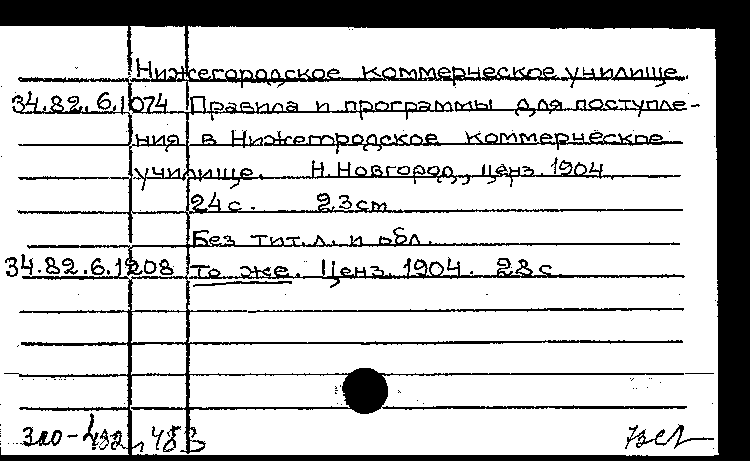 Нижегородское коммерческое училище.
34.82.6.1074 Правила и программы для поступле-
ния в Нижегородское коммерческое
училище. Н.Новгород, ценз. 1904
24 с. 23 см
Без тит. л. и обл.
34.82.6.1208 То же. Ценз. 1904. 28 с